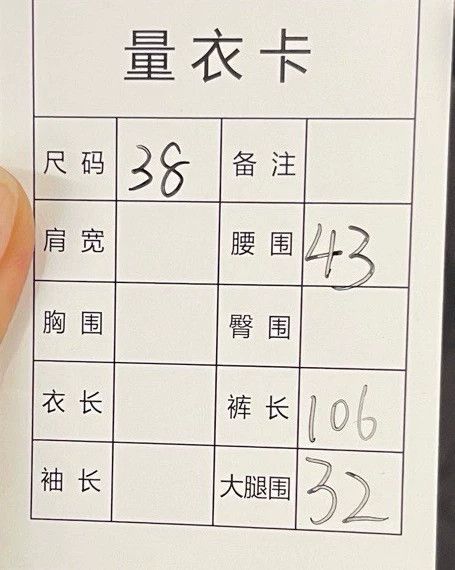 量衣卡
尺码 38 备注
肩宽 腰围 43
胸围 臀围
衣长 裤长 106
袖长 大腿围 32